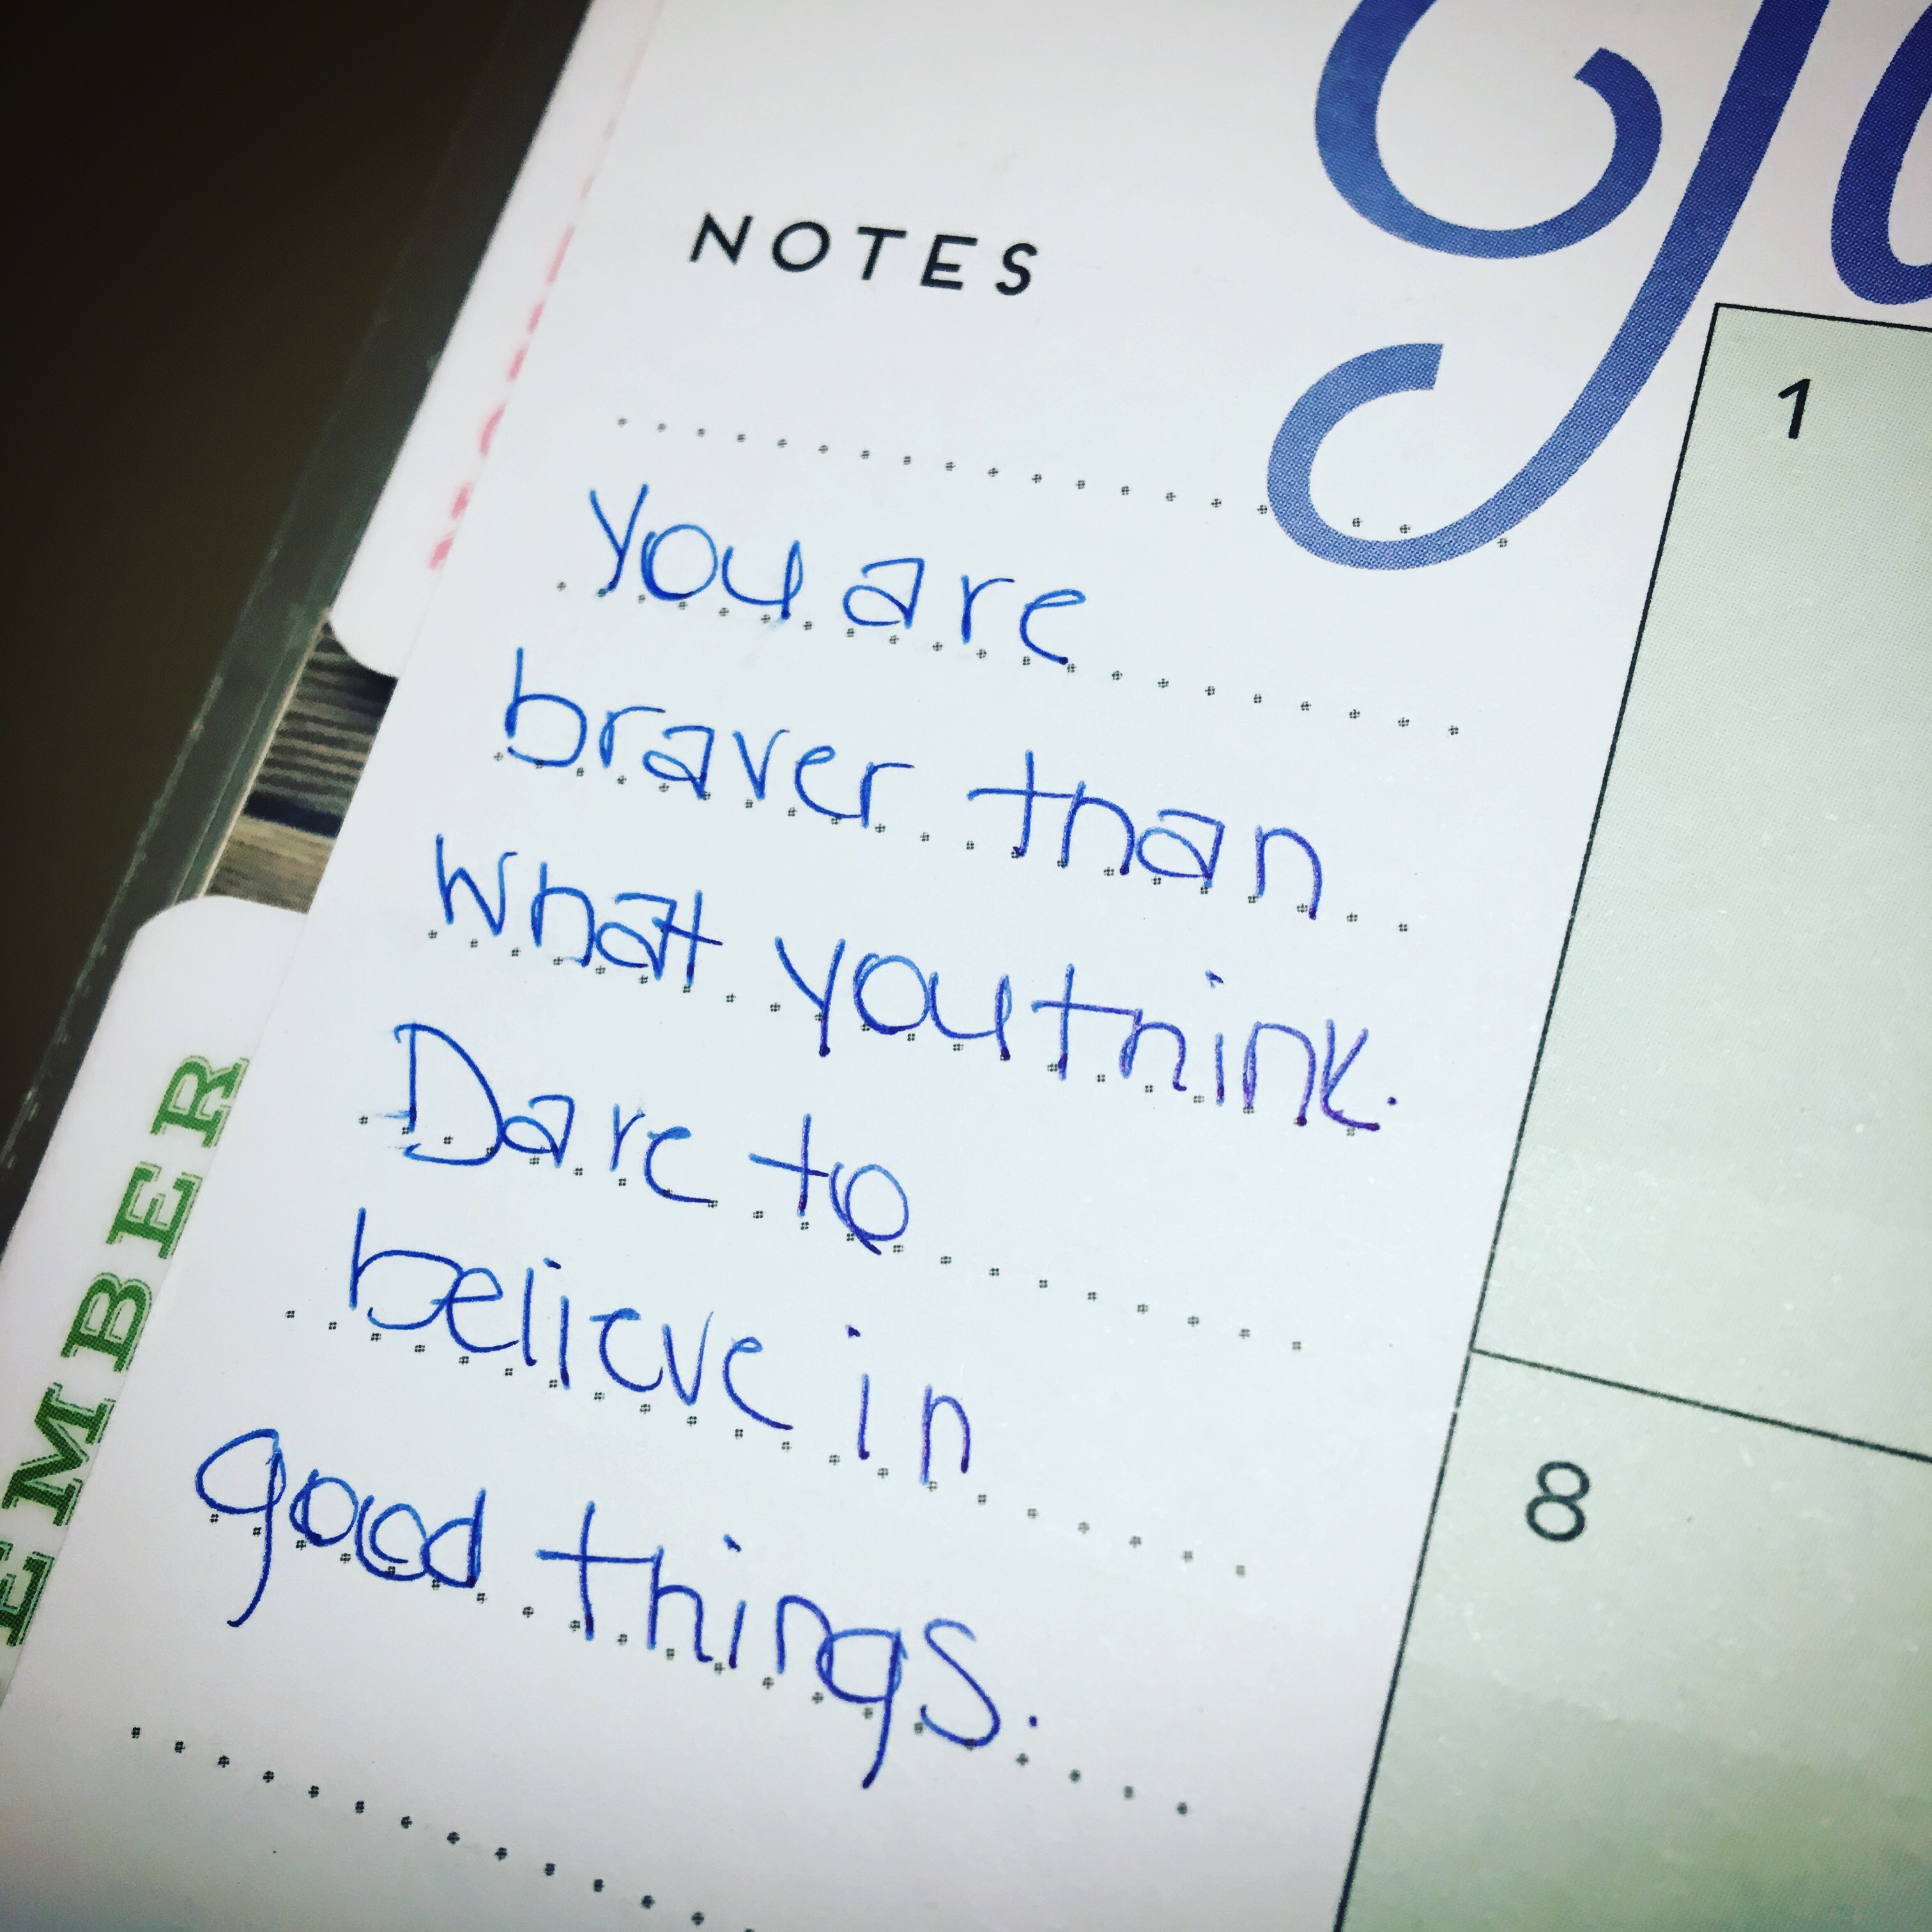 NOTES
1
You are
braver than
what you think.
Dare to
believe in
good things.
8
EMBER